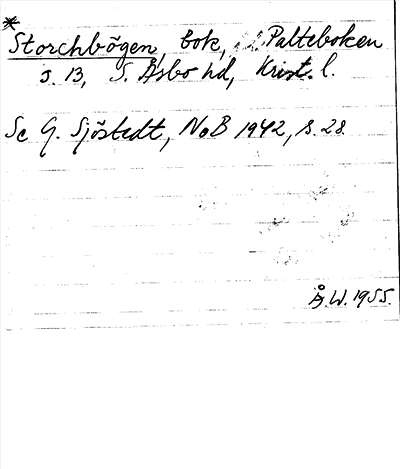 *
Storchbögen, bok, i Palteboken
s. 13, S. Åsbo hd, Krist. l.
Se G. Sjöstedt, NoB 1942, s. 28.
Å.W. 1955.